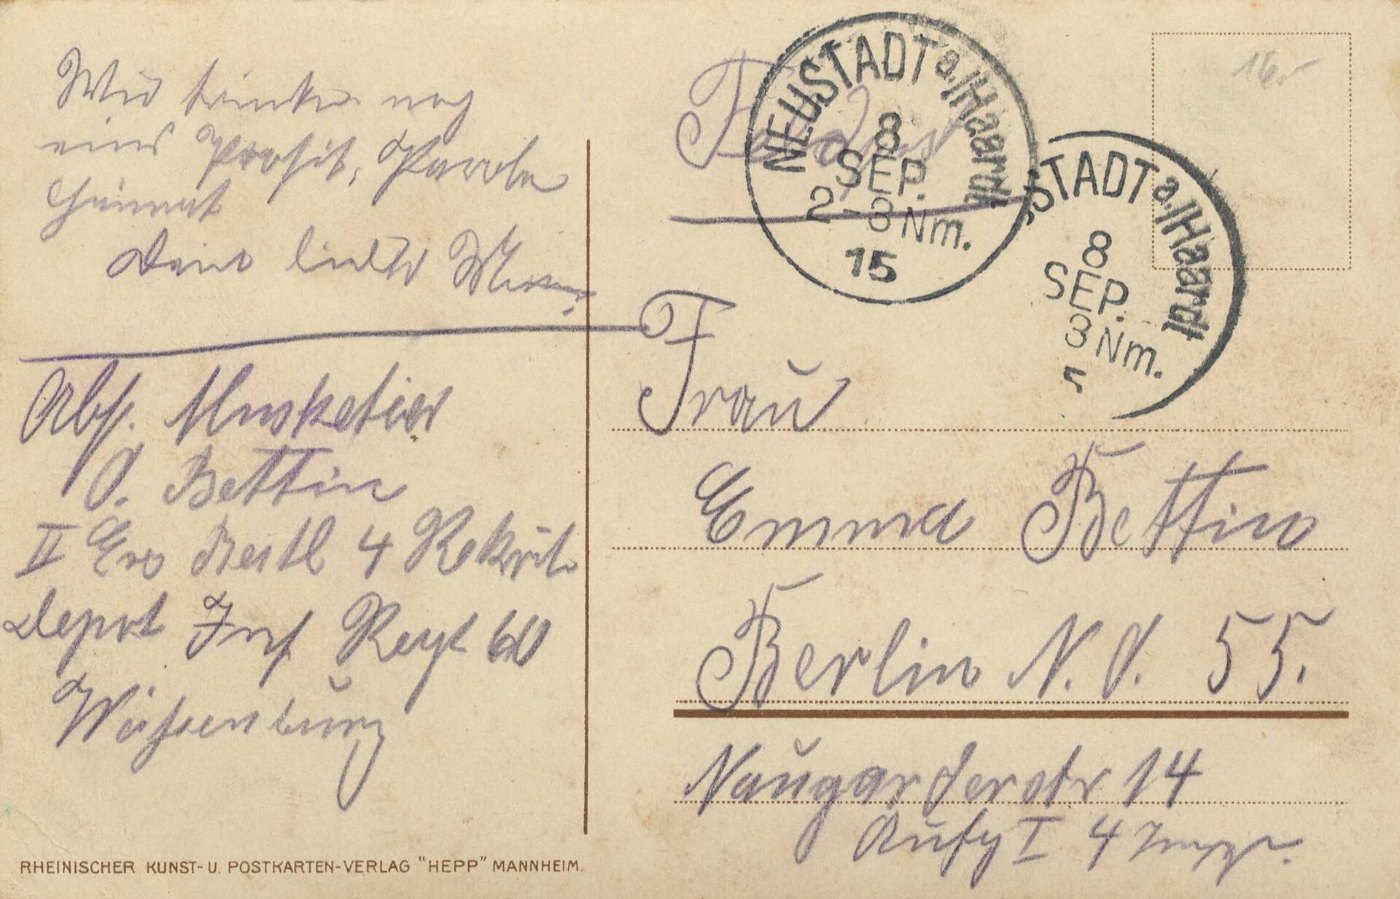 Wir trinken noch
eins Prosit, Parole
Heimat
Dein lieber
Abs. Musketier
O. Bettin
II Ers Batl 4 Rekrut
Depot Inf Regt 60
Weissenburg
RHEINISCHER KUNST- U. POSTKARTEN-VERLAG "HEPP" MANNHEIM.
Feldpost
NEUSTADT a./Haardt
8
SEP.
2-3 Nm.
15
STADT a./Haardt
8
SEP.
3 Nm.
5
16
Frau
Emma Bettin
Berlin N.O. 55.
Naugarderstr 14
Aufg I 4